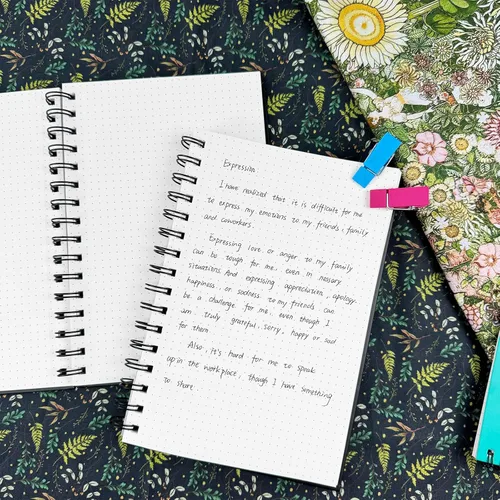 Expression
I have realized that it is difficult for me
to express my emotions to my friends, family
and coworkers.
Expressing love or anger to my family
can be tough for me, even in nessary
situations. And expressing appreciation, apology,
happiness, or sadness to my friends can
be a challenge for me, even though I
am truly grateful, sorry, happy or sad
for them.
Also, it's hard for me to speak
up in the workplace, though I have something
to share.